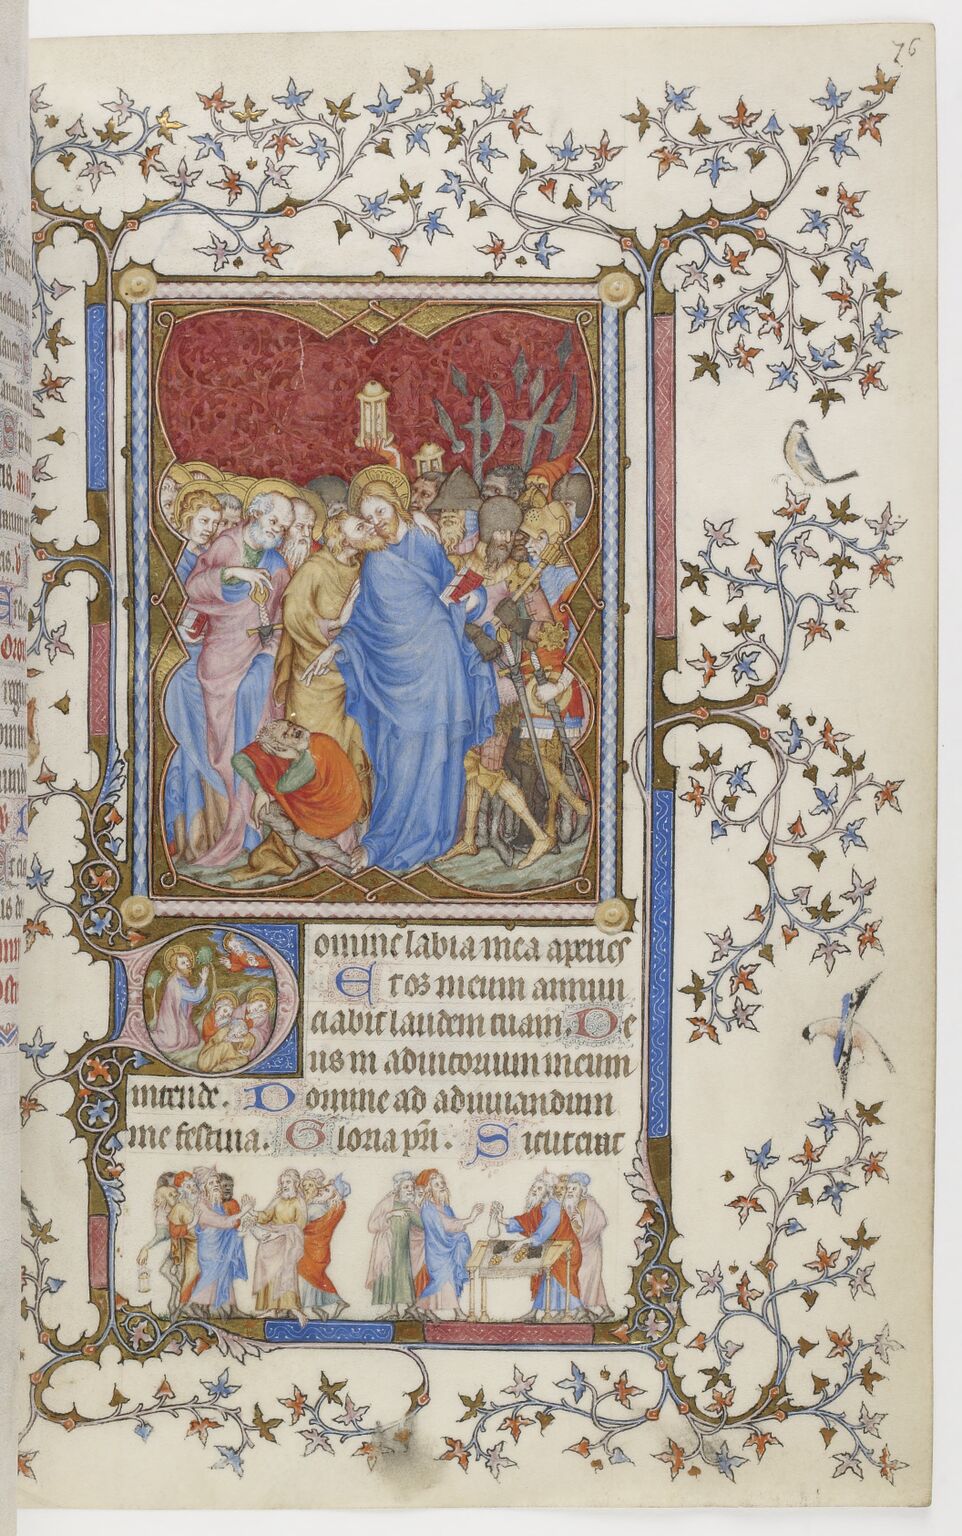 76
Domine labia mea aperies
Et os meum annun
ciabit laudem tuam. De
us in adiutorium meum
intende. Domine ad adiuuandum
me festina. Gloria pri. Sicut erat